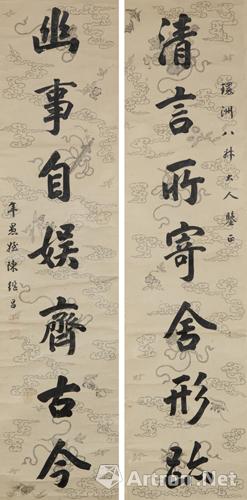 環洲八叔大人鑒正
清言所寄舍形跡
幽事自娱齊古今
年愚姪陳繼昌
Artron.Net